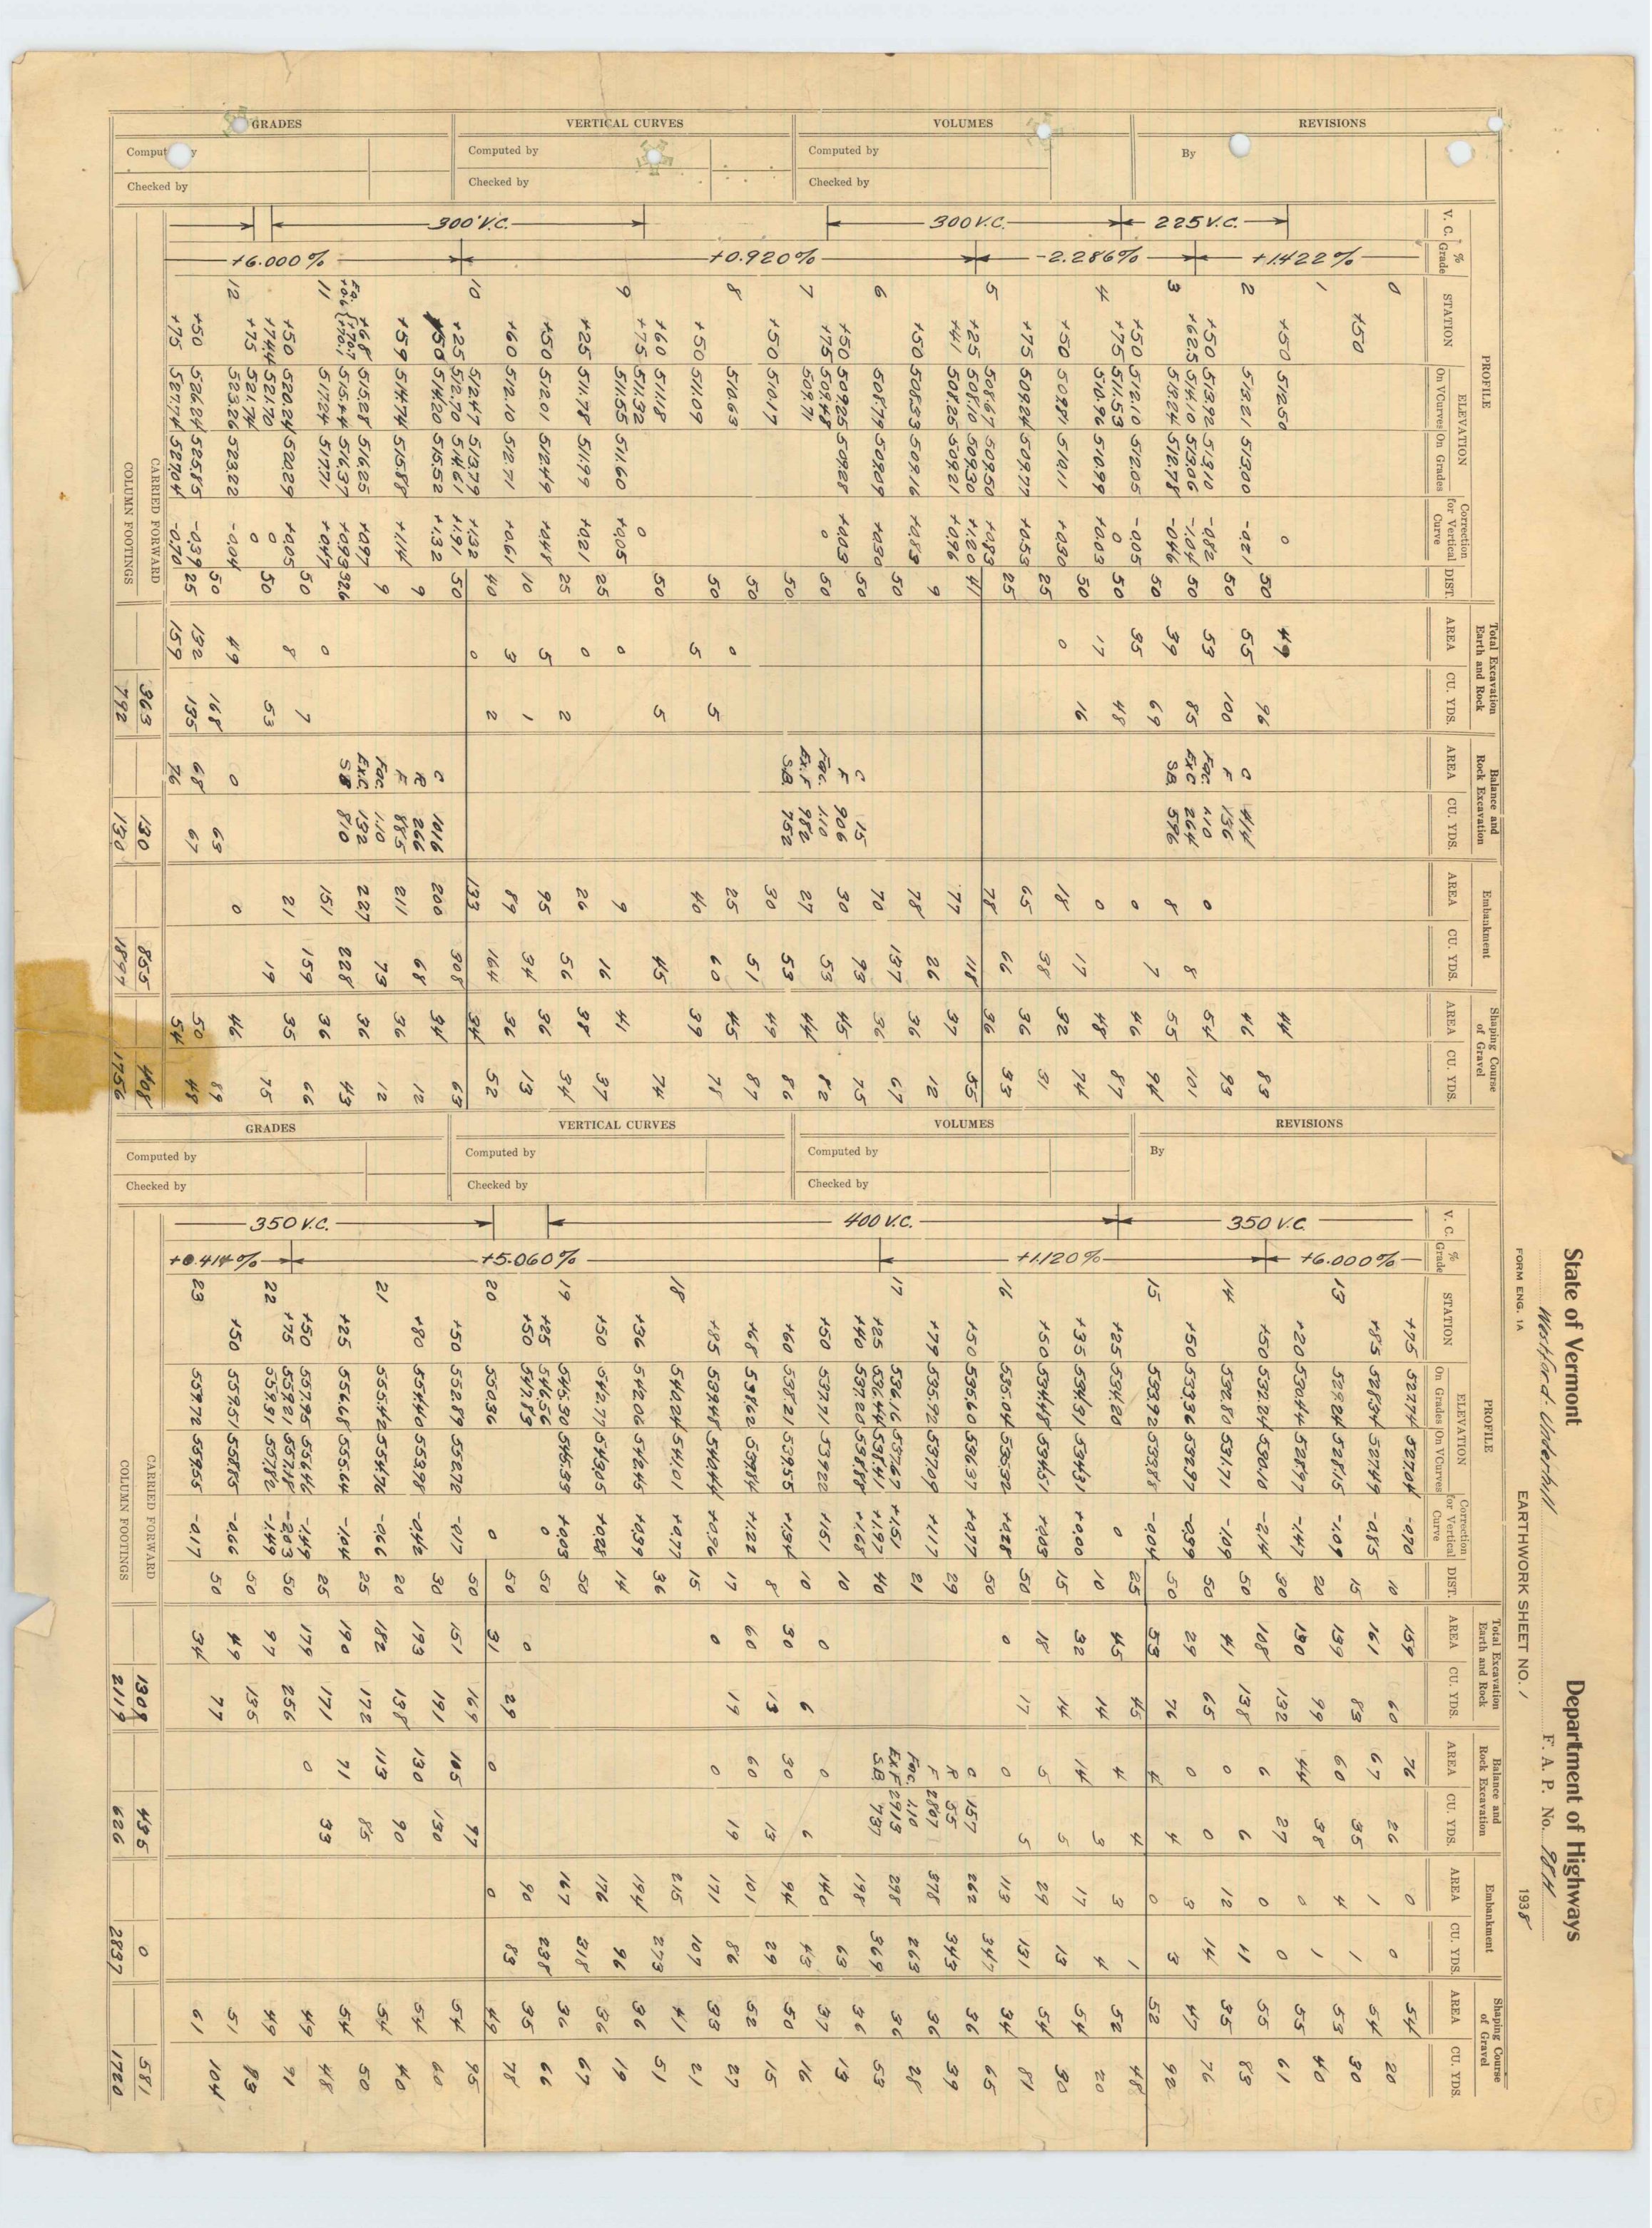 State of Vermont Department of Highways
Westford-Underhill F. A. P. No. 98H
FORM ENG. 1A EARTHWORK SHEET NO. 1 1938
REVISIONS
By
VOLUMES
Computed by
Checked by
VERTICAL CURVES
Computed by
Checked by
GRADES
Checked by
PROFILE Total Excavation Earth and Rock Balance and Rock Excavation Embankment Shaping Course of Gravel
V. C. % Grade STATION ELEVATION On V Curves On Grades Correction for Vertical Curve DIST. AREA CU. YDS. AREA CU. YDS. AREA CU. YDS. AREA CU. YDS.
0
+50
1
+50 512.50 0 49 44
50 96 83
2 513.21 513.00 -0.21 55 C 414 46
50 100 F 136 93
+50 513.92 513.10 -0.82 53 Fac. 1.10 0 54
+62.5 514.10 513.06 -1.04 50 85 Ex C 264 8 101
3 513.24 512.78 -0.46 39 S.B. 596 8 55
50 69 7 94
+50 512.10 512.05 -0.05 35 0 46
+75 511.53 0 50 48 87
4 510.96 510.99 +0.03 17 0 48
50 16 17 74
+50 509.81 510.11 +0.30 0 18 32
25 38 31
+75 509.24 509.77 +0.53 65 36
25 66 33
5 508.67 509.50 +0.83 78 36
+25 508.10 509.30 +1.20 41 118 55
+41 508.25 509.21 +0.96 77 37
9 26 12
+50 508.33 509.16 +0.83 78 36
50 137 67
6 508.79 509.09 +0.30 C 15 70 36
50 93 75
+50 509.25 509.28 +0.03 F 906 30 45
+75 509.48 0 50 Fac. 1.10 53 82
7 509.71 Ex. F 982 27 44
50 S.B. 752 53 86
+50 510.17 30 49
50 51 87
8 510.63 0 25 45
50 5 60 78
+50 511.09 5 40 39
+60 511.18 50 5 45 74
+75 511.32 0
9 511.55 511.60 +0.05 0 9 41
25 16 37
+25 511.78 511.99 +0.21 0 26 38
25 2 56 34
+50 512.01 512.49 +0.48 5 95 36
10 1 34 13
+60 512.10 512.71 +0.61 3 89 36
40 2 164 52
10 512.47 513.79 +1.32 0 133 34
+25 512.70 514.61 +1.91 50 308 63
+50 514.20 515.52 +1.32 C 1016 200 34
9 R 266 68 12
+59 514.74 515.88 +1.14 F 885 211 36
9 Fac. 1.10 73 12
+68 515.28 516.25 +0.97 Ex.C 132 227 36
515.44 516.37 +0.93 32.6 S B 810 228 43
11 517.24 517.71 +0.47 0 151 36
50 7 159 66
+50 520.24 520.29 +0.05 8 21 35
+74.4 521.70 0 50 53 19 75
+75 521.74 0
12 523.26 523.22 -0.04 49 0 0 46
50 168 63 89
+50 526.24 525.85 -0.39 132 68 50
25 135 67 48
+75 527.74 527.04 -0.70 159 76 54
CARRIED FORWARD 363 130 855 408
COLUMN FOOTINGS 792 130 1897 1756
225 V.C. 300 V.C. 300' V.C.
+1.422% -2.286% +0.920% +6.000%
REVISIONS
By
VOLUMES
Computed by
Checked by
VERTICAL CURVES
Computed by
Checked by
GRADES
Computed by
Checked by
PROFILE Total Excavation Earth and Rock Balance and Rock Excavation Embankment Shaping Course of Gravel
V. C. % Grade STATION ELEVATION On Grades On V Curves Correction for Vertical Curve DIST. AREA CU. YDS. AREA CU. YDS. AREA CU. YDS. AREA CU. YDS.
+75 527.74 527.04 -0.70 159 76 0 54
10 60 26 0 20
+85 528.34 527.49 -0.85 161 67 1 54
15 83 35 1 30
13 529.24 528.15 -1.09 139 60 4 53
20 99 38 1 40
+20 530.44 528.97 -1.47 130 44 0 55
30 132 27 0 61
+50 532.24 530.10 -2.14 108 6 0 55
50 138 6 11 83
14 532.80 531.71 -1.09 41 0 12 35
50 65 0 14 76
+50 533.36 532.97 -0.39 29 0 3 47
50 76 4 3 92
15 533.92 533.88 -0.04 53 4 0 52
25 45 4 1 48
+25 534.20 0 45 4 3 52
10 14 3 4 20
+35 534.31 534.31 +0.00 32 14 17 54
15 14 5 13 30
+50 534.48 534.51 +0.03 18 5 29 54
50 17 5 131 81
16 535.04 535.32 +0.28 0 0 113 34
50 347 65
+50 535.60 536.37 +0.77 C 157 262 36
29 R 55 343 39
+79 535.92 537.09 +1.17 F 2807 378 36
21 Fac. 1.10 263 28
17 536.16 537.67 +1.51 Ex F 2913 298 36
+25 536.44 538.41 +1.97 40 S.B. 737 369 53
+40 537.20 538.88 +1.68 198 36
10 63 13
+50 537.71 539.22 +1.51 0 0 140 37
10 6 6 43 16
+60 538.21 539.55 +1.34 30 30 94 50
8 13 13 29 15
+68 538.62 539.84 +1.22 60 60 101 52
17 19 19 86 27
+85 539.48 540.44 +0.96 0 0 171 33
15 107 21
18 540.24 541.01 +0.77 215 41
36 273 51
+36 542.06 542.45 +0.39 194 36
14 96 19
+50 542.77 543.05 +0.28 176 36
50 318 67
19 545.30 545.33 +0.03 167 36
+25 546.56 0 50 238 66
+50 547.83 0 90 35
50 29 83 78
20 550.36 0 31 0 0 49
50 169 97 95
+50 552.89 552.72 -0.17 151 105 54
30 191 130 60
+80 554.40 553.98 -0.42 193 130 54
20 138 90 40
21 555.42 554.76 -0.66 182 113 54
25 172 85 50
+25 556.68 555.64 -1.04 190 71 54
25 171 33 48
+50 557.95 556.46 -1.49 179 0 49
+75 559.21 557.18 -2.03 50 256 91
22 559.31 557.82 -1.49 97 49
50 135 93
+50 559.51 558.85 -0.66 49 51
50 77 104
23 559.72 559.55 -0.17 34 61
CARRIED FORWARD 1309 495 0 581
COLUMN FOOTINGS 2119 626 2837 1720
350 V.C. 400 V.C. 350 V.C.
+6.000% +1.120% +5.060% +0.414%